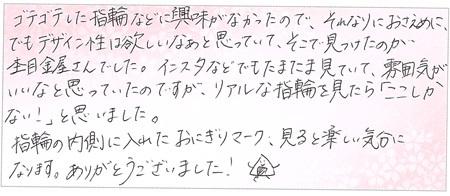 ゴテゴテした指輪などに興味がなかったので、それなりにおさえめに、
でもデザイン性は欲しいなぁと思っていて、そこで見つけたのが
杢目金屋さんでした。インスタなどでもたまたま見ていて、雰囲気が
いいなと思っていたのですが、リアルな指輪を見たら「ここしか
ない!」と思いました。
指輪の内側に入れたおにぎりマーク、見ると楽しい気分に
なります。ありがとうございました!